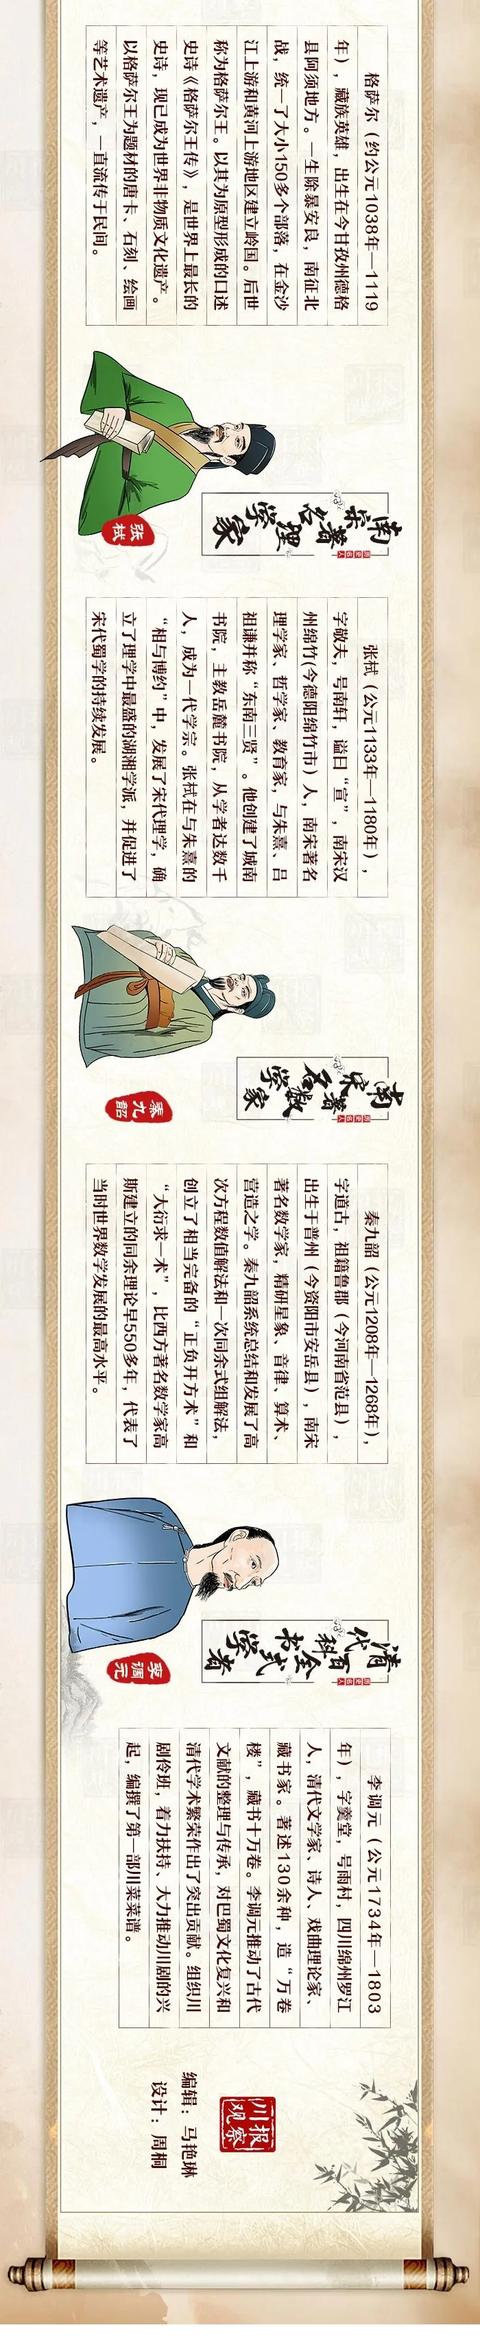 格萨尔（约公元1038年—1119
年），藏族英雄，出生在今甘孜州德格
县阿须地方。一生除暴安良，南征北
战，统一了大小150多个部落，在金沙
江上游和黄河上游地区建立岭国。后世
称为格萨尔王。以其为原型形成的口述
史诗《格萨尔王传》，是世界上最长的
史诗，现已成为世界非物质文化遗产。
以格萨尔王为题材的唐卡、石刻、绘画
等艺术遗产，一直流传于民间。
南宋著名理学家
历史名人
张栻
张栻（公元1133年—1180年），
字敬夫，号南轩，谥曰“宣”，南宋汉
州绵竹(今德阳绵竹市）人，南宋著名
理学家、哲学家、教育家，与朱熹、吕
祖谦并称“东南三贤”。他创建了城南
书院，主教岳麓书院，从学者达数千
人，成为一代学宗。张栻在与朱熹的
“相与博约”中，发展了宋代理学，确
立了理学中最盛的湖湘学派，并促进了
宋代蜀学的持续发展。
南宋著名数学家
历史名人
秦九韶
秦九韶（公元1208年—1268年），
字道古，祖籍鲁郡（今河南省范县），
出生于普州（今资阳市安岳县），南宋
著名数学家，精研星象、音律、算术、
营造之学。秦九韶系统总结和发展了高
次方程数值解法和一次同余式组解法，
创立了相当完备的“正负开方术”和
“大衍求一术”，比西方著名数学家高
斯建立的同余理论早550多年，代表了
当时世界数学发展的最高水平。
清代百科全书式学者
历史名人
李调元
李调元（公元1734年—1803
年），字羹堂，号雨村，四川绵州罗江
人，清代文学家、诗人、戏曲理论家、
藏书家。著述130余种，造“万卷
楼”，藏书十万卷。李调元推动了古代
文献的整理与传承，对巴蜀文化复兴和
清代学术繁荣作出了突出贡献。组织川
剧伶班，着力扶持、大力推动川剧的兴
起，编撰了第一部川菜菜谱。
川报观察
编辑：马艳琳
设计：周桐